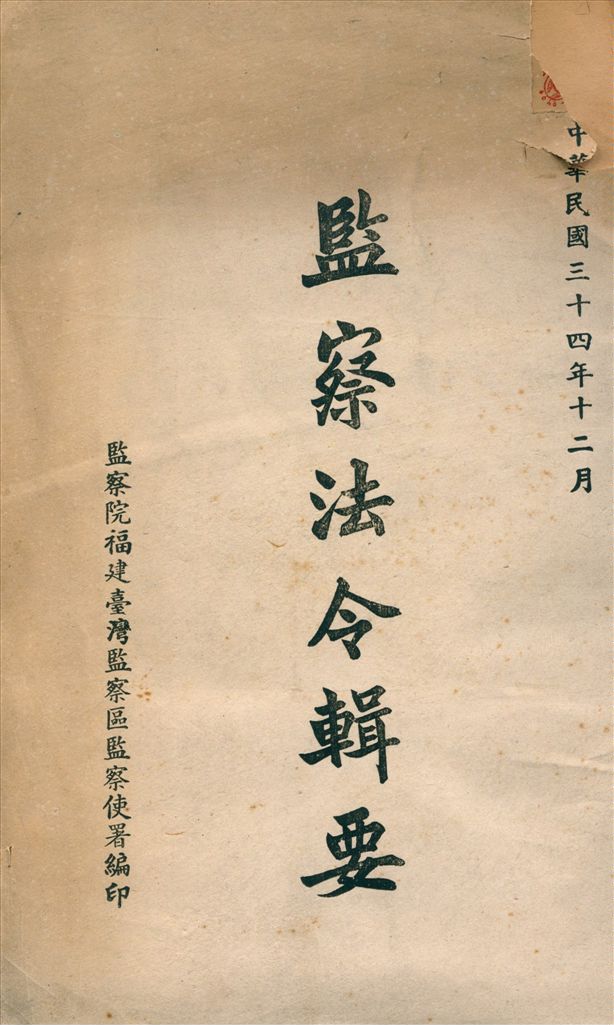 中華民國三十四年十二月
監察法令輯要
監察院福建臺灣監察區監察使署編印